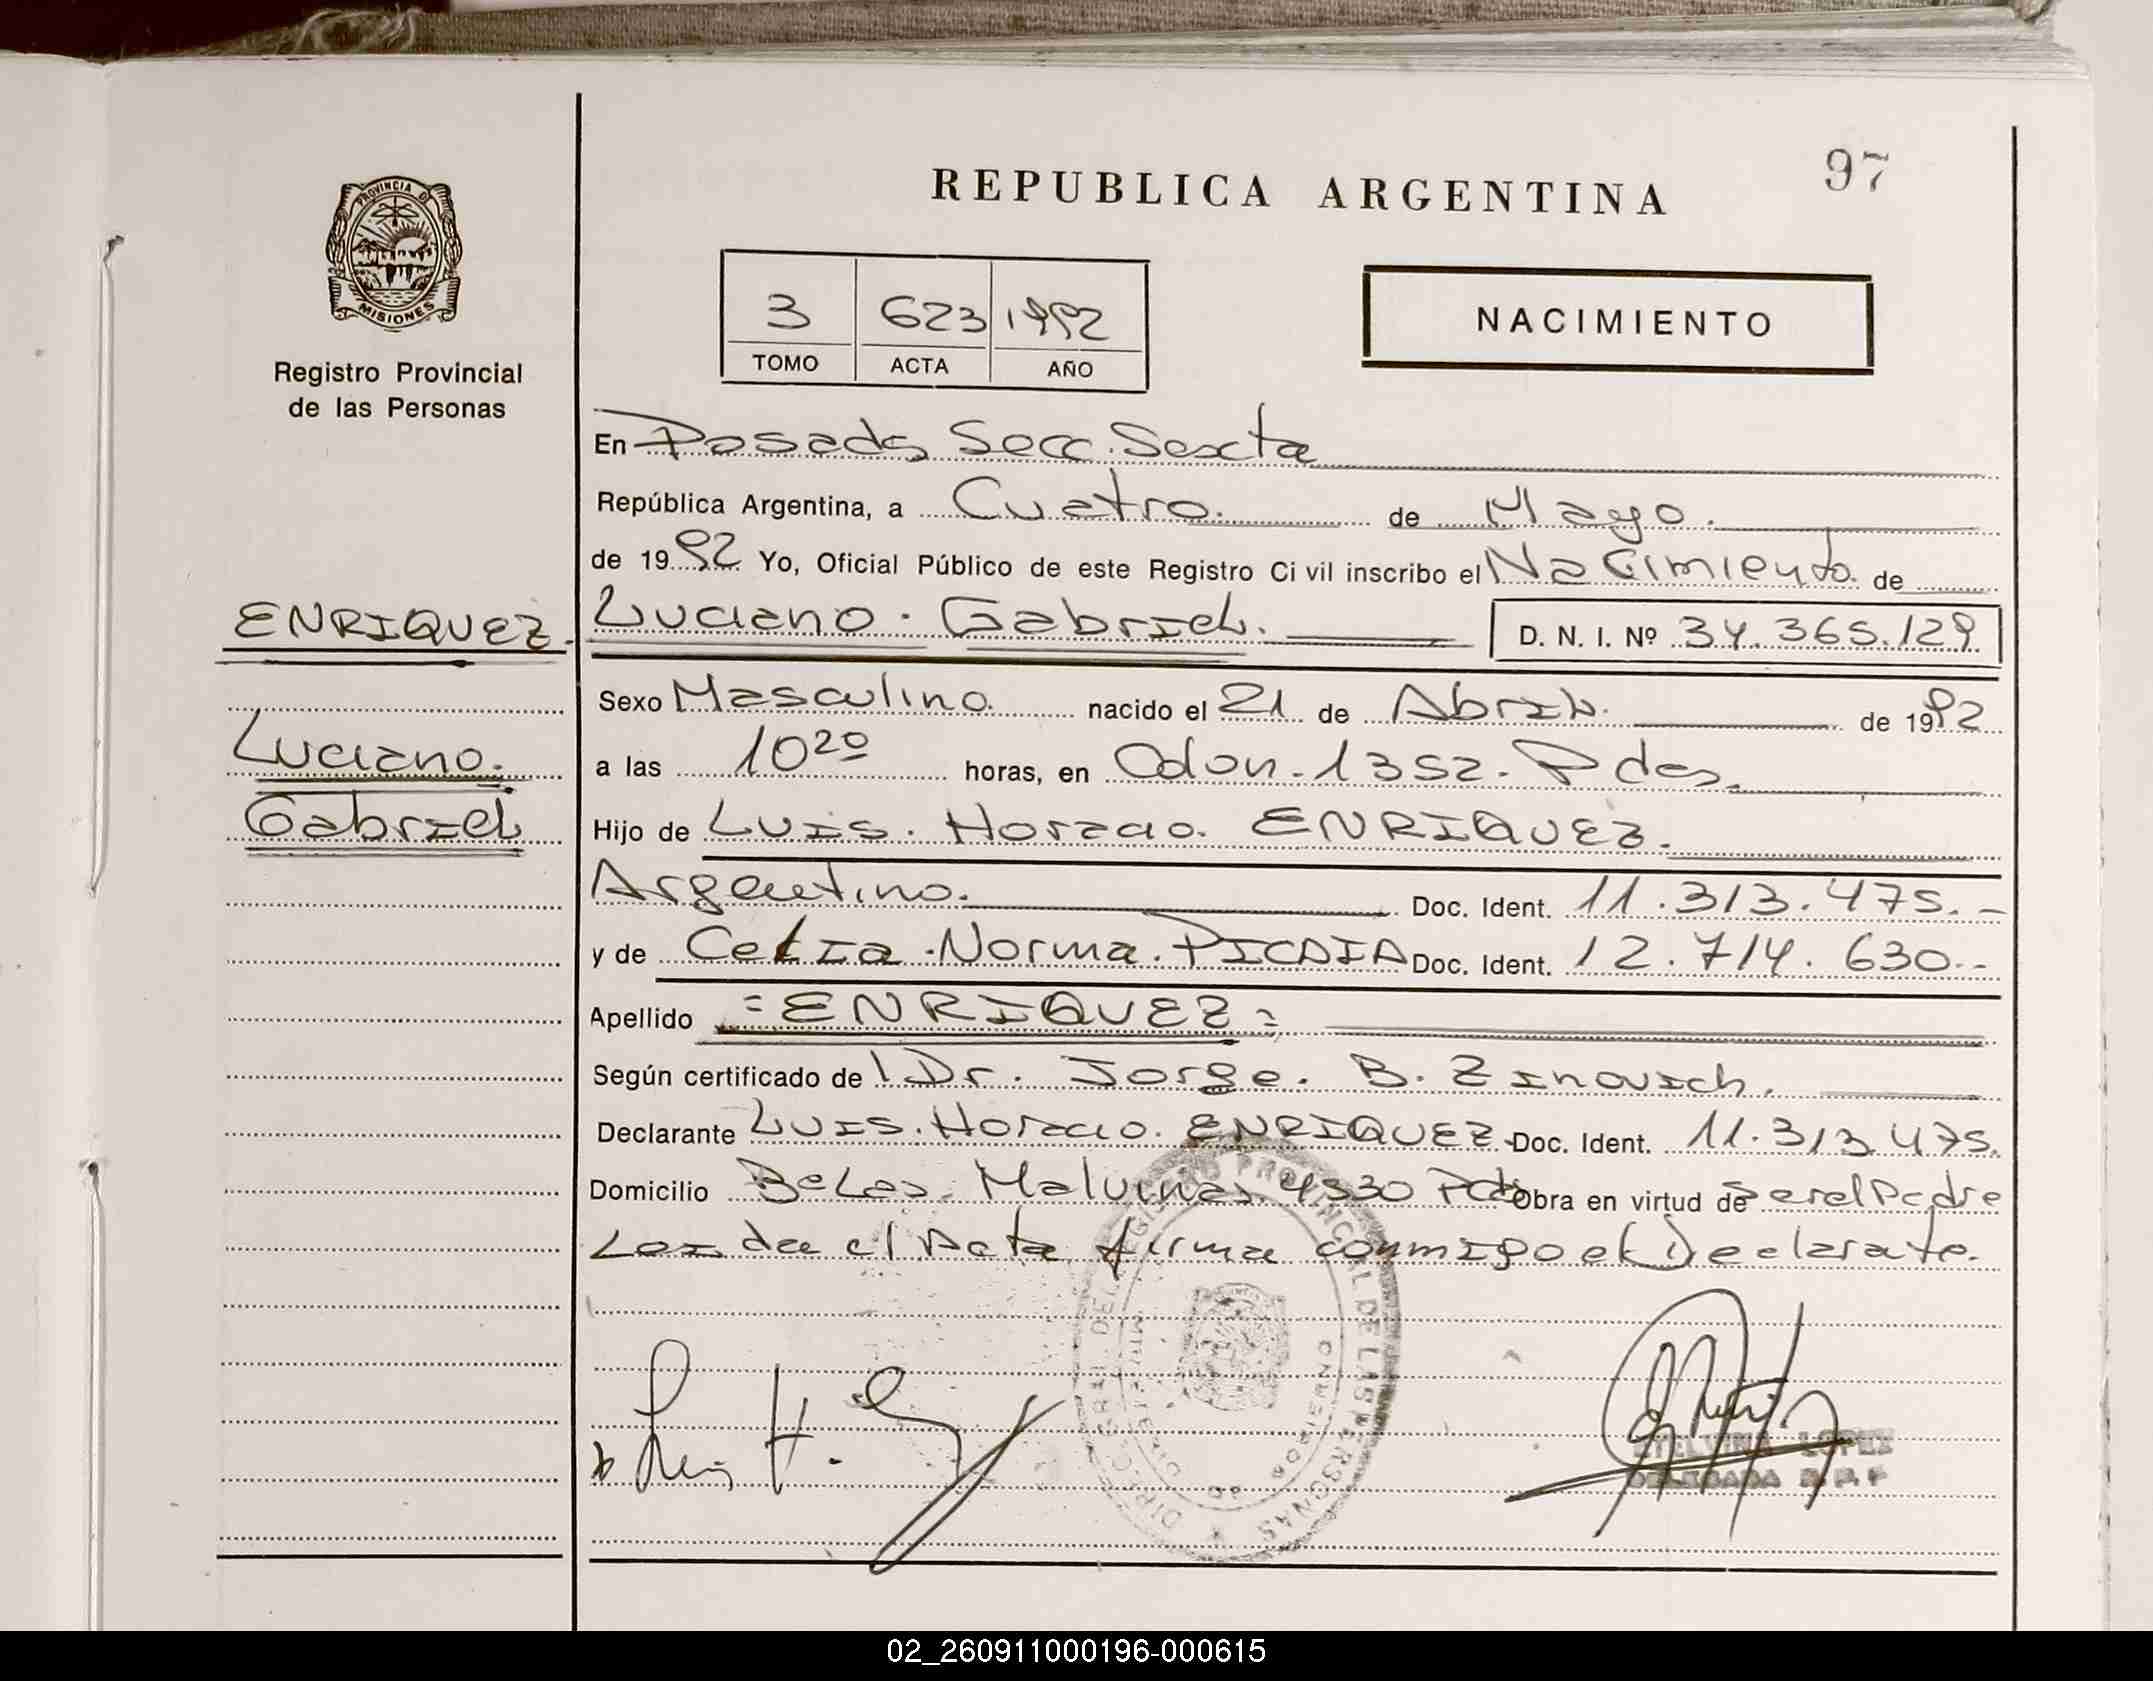 97
REPUBLICA ARGENTINA
PROVINCIA DE
MISIONES
Registro Provincial
de las Personas
3 623 1992
TOMO ACTA AÑO
NACIMIENTO
En Posadas Secc. Sexta
República Argentina, a Cuatro. de Mayo.
de 1992 Yo, Oficial Público de este Registro Civil inscribo el Nacimiento. de
ENRIQUEZ. Luciano. Gabriel. D. N. I. Nº 34.365.129
Sexo Masculino. nacido el 21 de Abril. de 1992
Luciano. a las 10 20 horas, en Colon. 1352. Pdas.
Gabriel Hijo de Luis. Horacio. ENRIQUEZ.
Argentino. Doc. Ident. 11.313.475.-
y de Celia. Norma. Doc. Ident. 12.714.630.-
Apellido =ENRIQUEZ=
Según certificado de Dr. Jorge. B. Zinovich.
Declarante Luis. Horacio. ENRIQUEZ. Doc. Ident. 11.313.475.
Domicilio Malvinas 4530 Pdas Obra en virtud de ser el Padre
Leida el Acta firma conmigo el Declarate.
REGISTRO PROVINCIAL DE LAS PERSONAS
Luis H.
ETELVINA LOPEZ
DELEGADA R.P.P
02_260911000196-000615